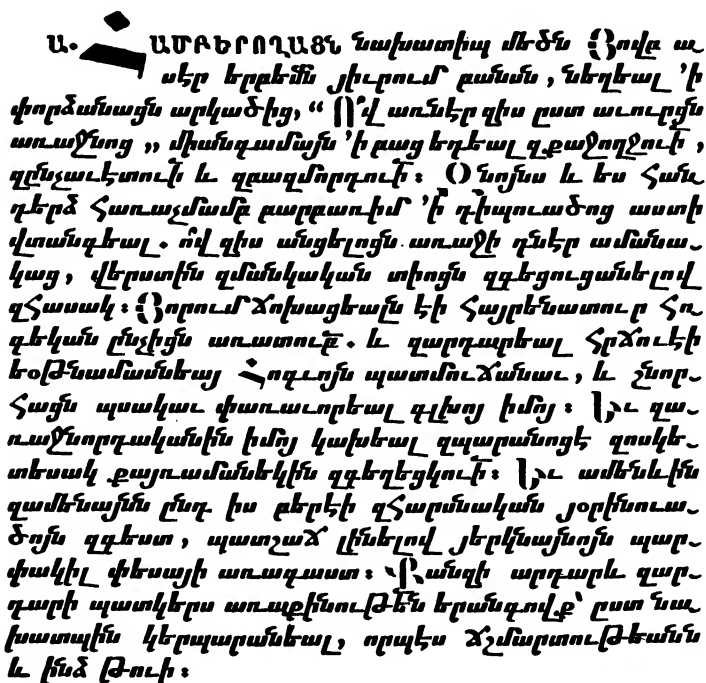 Ա. ՀԱՄԲԵՐՈՂԱՑՆ նախատիպ մեծն Յովբ ա֊
սէր երբեմն յիւրում բանսն, նեղեալ 'ի
փորձանացն արկածից, “ Ո՞վ առնէր զիս ըստ աւուրցն
առաջնոց „ միանգամայն 'ի բաց եդեալ զքաջողջուի̃,
զընչաւէտուի̃ և զբազմորդուի̃։ Օ նոյնս և ես հան
դերձ հառաչմամբ բարբառիմ 'ի̃ դիպուածոց աստի
վտանգեալ. ո՞վ զիս անցելոցն առաջի դնէր ամանա֊
կաց, վերստին զմանկական տիոցն զգեցուցանելով
զհասակ։ Յորում ճոխացեալն էի հայրենատուր հո
գեկան ընչիցն առատուբ̃. և զարդարեալ հրճուէի
եօթնամասնեայ Հոգւոյն պատմուճանաւ, և շնոր֊
հացն պսակաւ փառաւորեալ գլխոյ իմոյ։ Իւ զա֊
ռաջնորդականին իմոյ կախեալ զպարանոցէ զոսկե֊
տեսակ քայռամանեկին զգեղեցկուի̃։ Իւ ամենևին
զամենայնն ընդ իս բերէի զհարսնական յօրինուա֊
ծոյն զգեստ, պատշաճ լինելով յերկնայնոյն պար֊
փակիլ փեսայի առագաստ։ Քանզի արդարև զար֊
դարի պատկերս առաքինութեն̃ երանգովք՝ ըստ նա
խատպին կերպարանեալ, որպէս ճշմարտութեանն
և ինձ թուի։